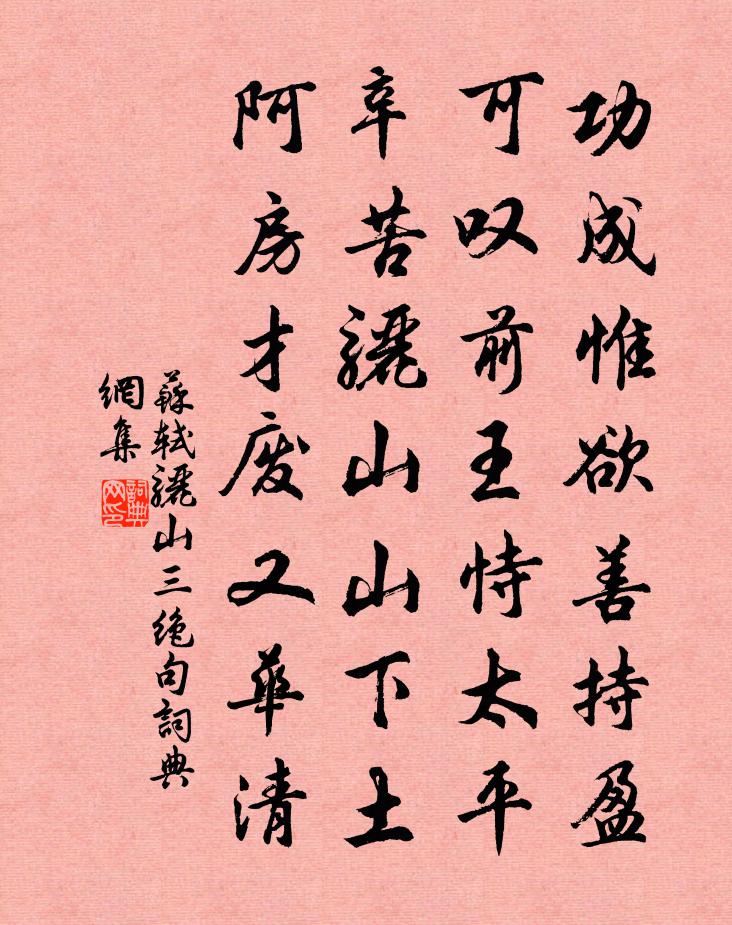 功成惟欲善持盈
可叹前王恃太平
辛苦骊山山下土
阿房才废又华清
蘇軾驪山三绝句詞典
網集
詞典
网印